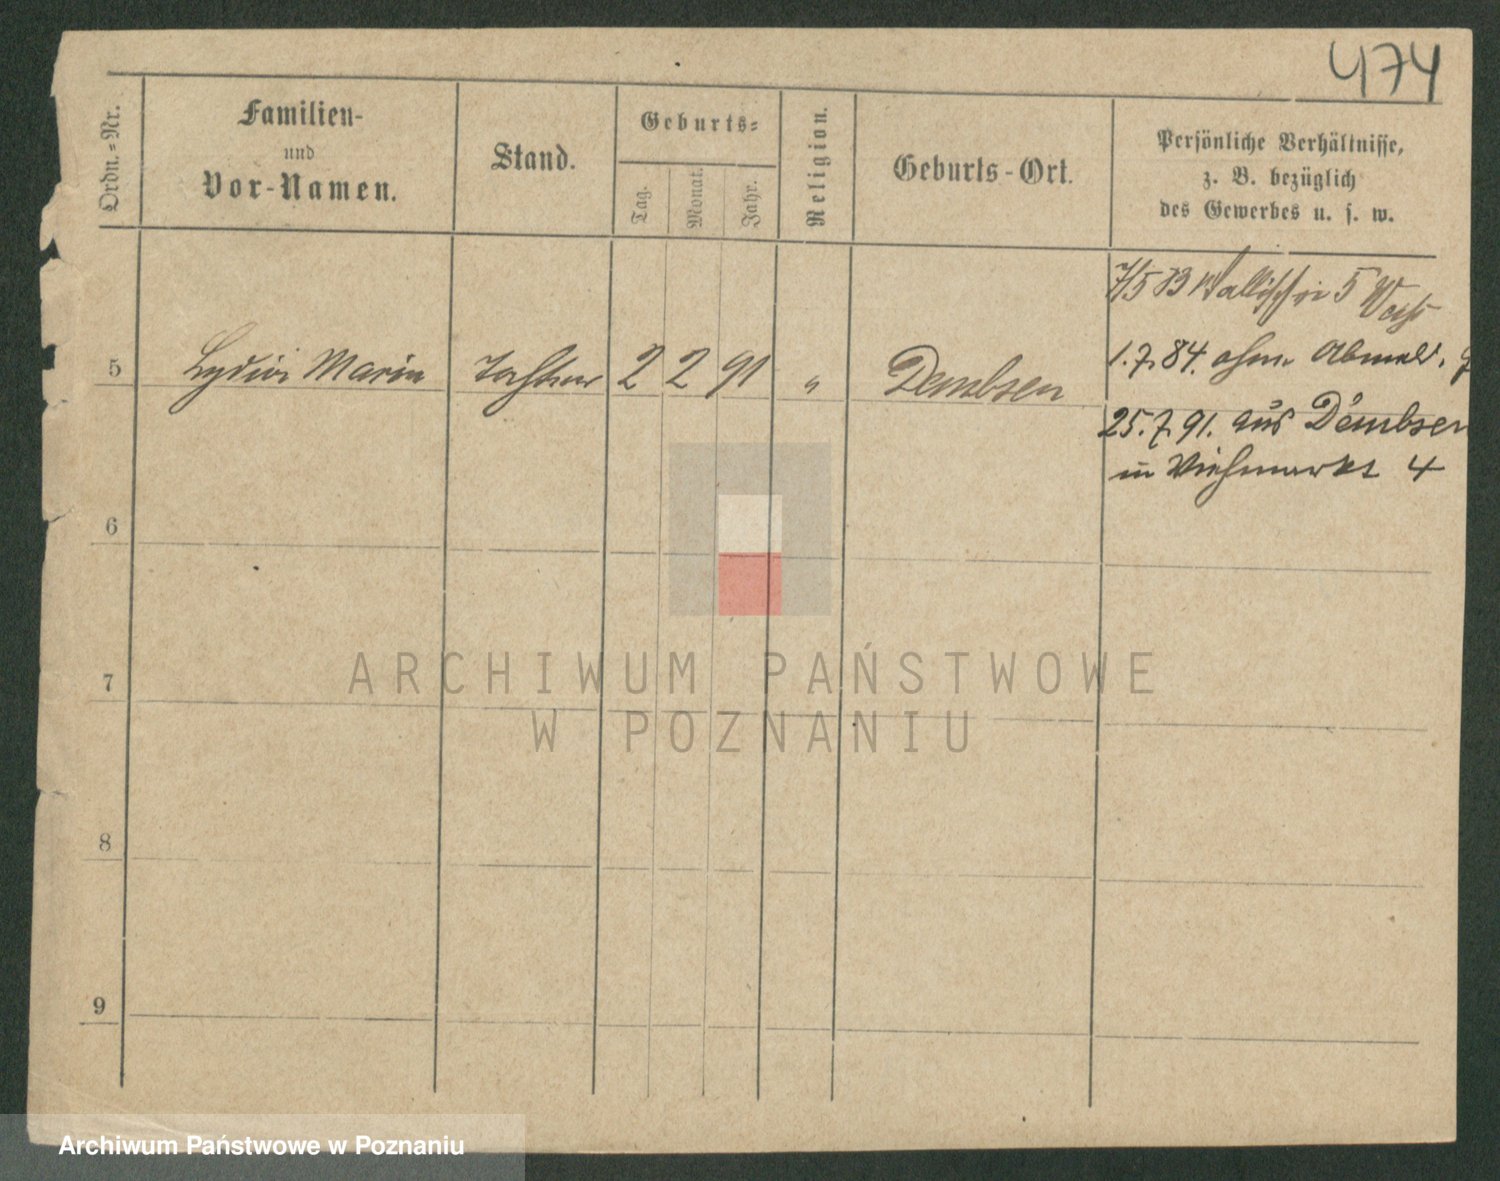 474
Ordn.-Nr.
Familien-
und
Vor-Namen.
Stand.
Geburts-
Tag.
Monat.
Jahr.
Religion.
Geburts-Ort.
Persönliche Verhältnisse,
z. B. bezüglich
des Gewerbes u. s. w.
7/5 83 Wallischei 5
5 Lydia Maria Tochter 2 2 91 " Dembsen
1.7.84. ohne Abmeld.
25.7.91. aus Dembsen
in Viehmarkt 4
6
7
8
9
ARCHIWUM PAŃSTWOWE
W POZNANIU
Archiwum Państwowe w Poznaniu